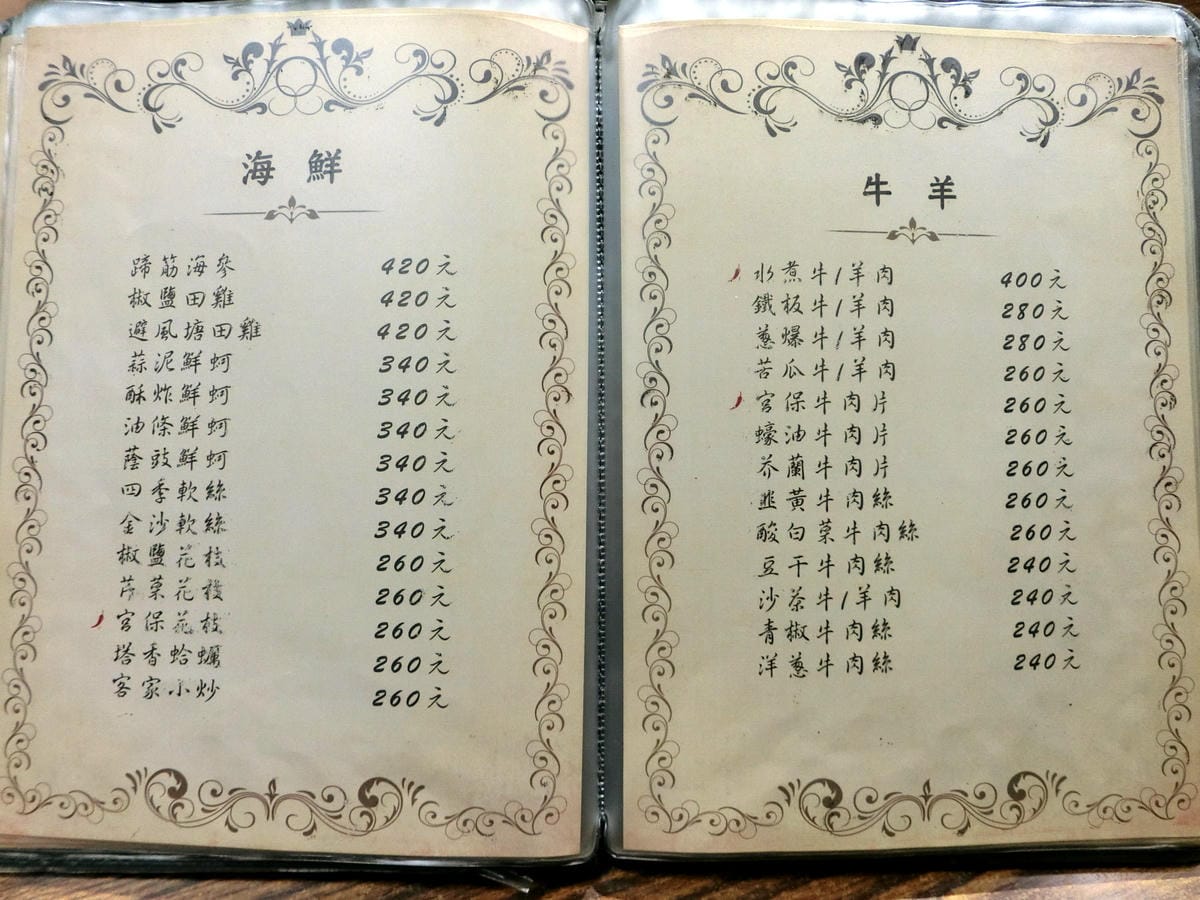 海鮮
蹄筋海參 420元
椒鹽田雞 420元
避風塘田雞 420元
蒜泥鮮蚵 340元
酥炸鮮蚵 340元
油條鮮蚵 340元
蔭豉鮮蚵 340元
四季軟絲 340元
金沙軟絲 340元
椒鹽花枝 260元
芹菜花枝 260元
宮保花枝 260元
塔香蛤蠣 260元
客家小炒 260元
牛羊
水煮牛/羊肉 400元
鐵板牛/羊肉 280元
蔥爆牛/羊肉 280元
苦瓜牛/羊肉 260元
宮保牛肉片 260元
蠔油牛肉片 260元
芥蘭牛肉片 260元
韭黃牛肉絲 260元
酸白菜牛肉絲 260元
豆干牛肉絲 240元
沙茶牛/羊肉 240元
青椒牛肉絲 240元
洋蔥牛肉絲 240元